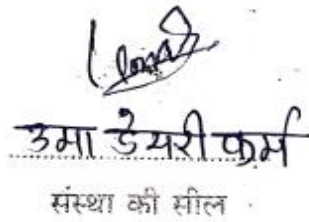 उमा डेयरी फर्म
संस्था की सील